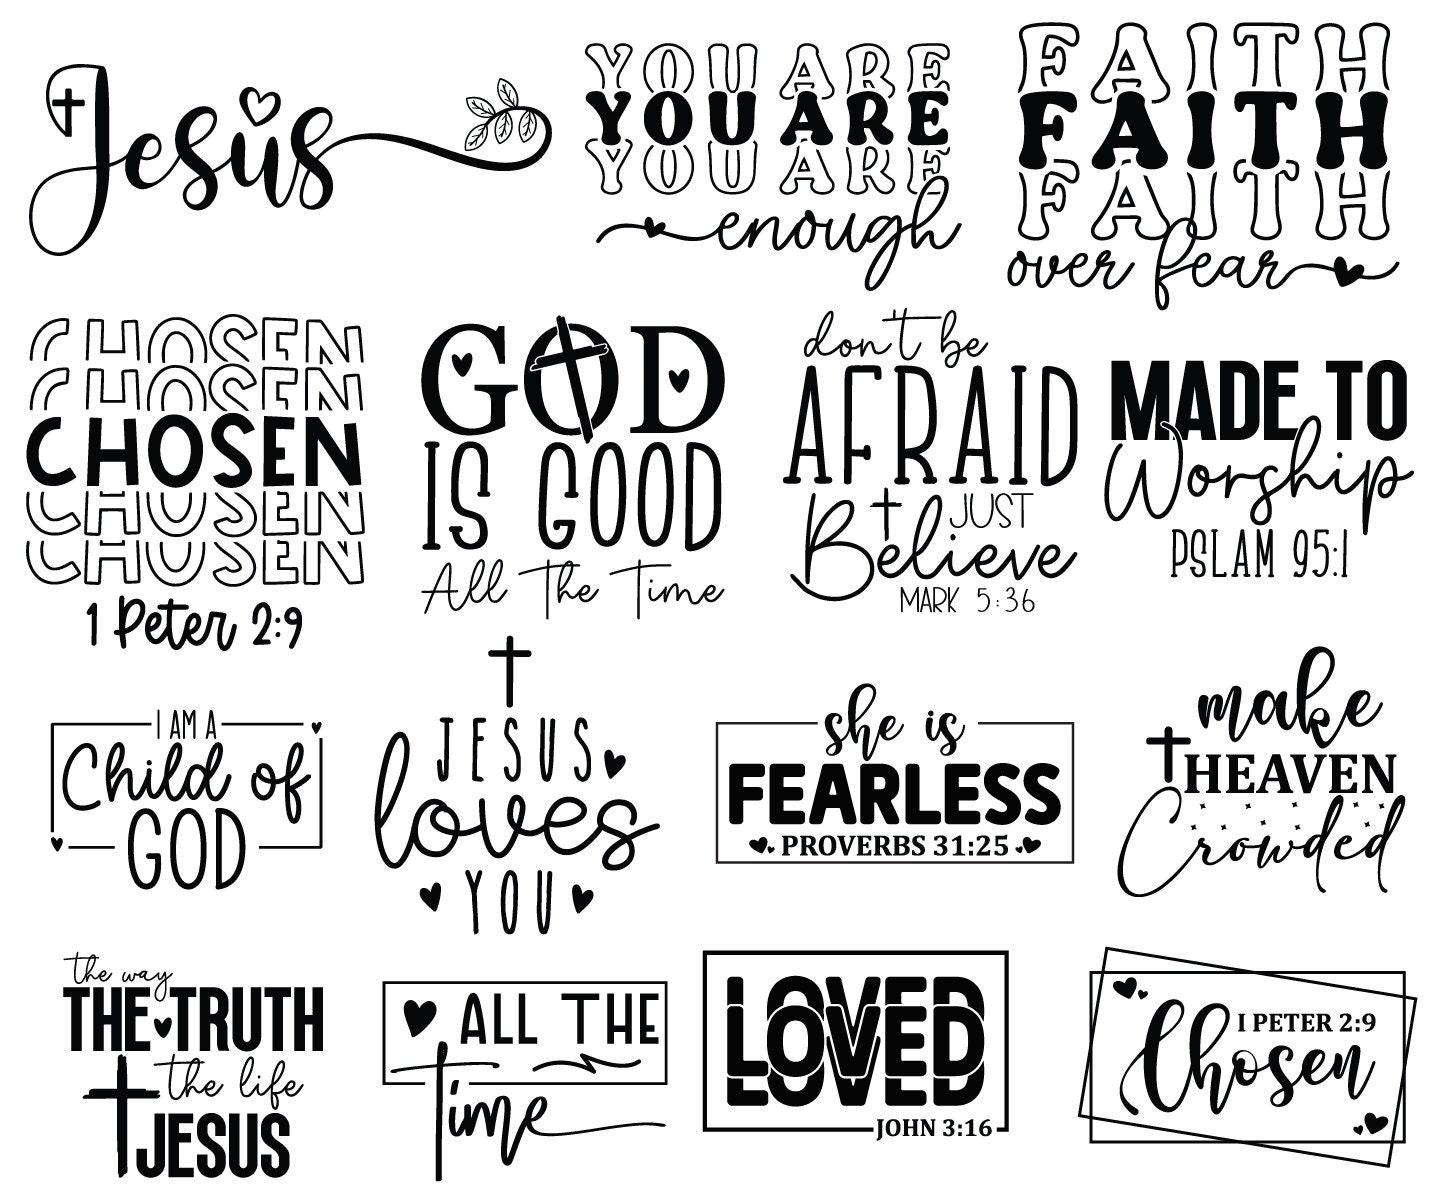 Jesus
YOU ARE
YOU ARE
YOU ARE
enough
FAITH
FAITH
FAITH
over fear
CHOSEN
CHOSEN
CHOSEN
CHOSEN
CHOSEN
1 Peter 2:9
GOD
IS GOOD
All The Time
don't be
AFRAID
JUST
Believe
MARK 5:36
MADE TO
Worship
PSLAM 95:1
I AM A
Child of
GOD
JESUS
loves
YOU
she is
FEARLESS
PROVERBS 31:25
make
HEAVEN
Crowded
the way
THE TRUTH
the life
JESUS
ALL THE
Time
LOVED
LOVED
LOVED
JOHN 3:16
I PETER 2:9
Chosen